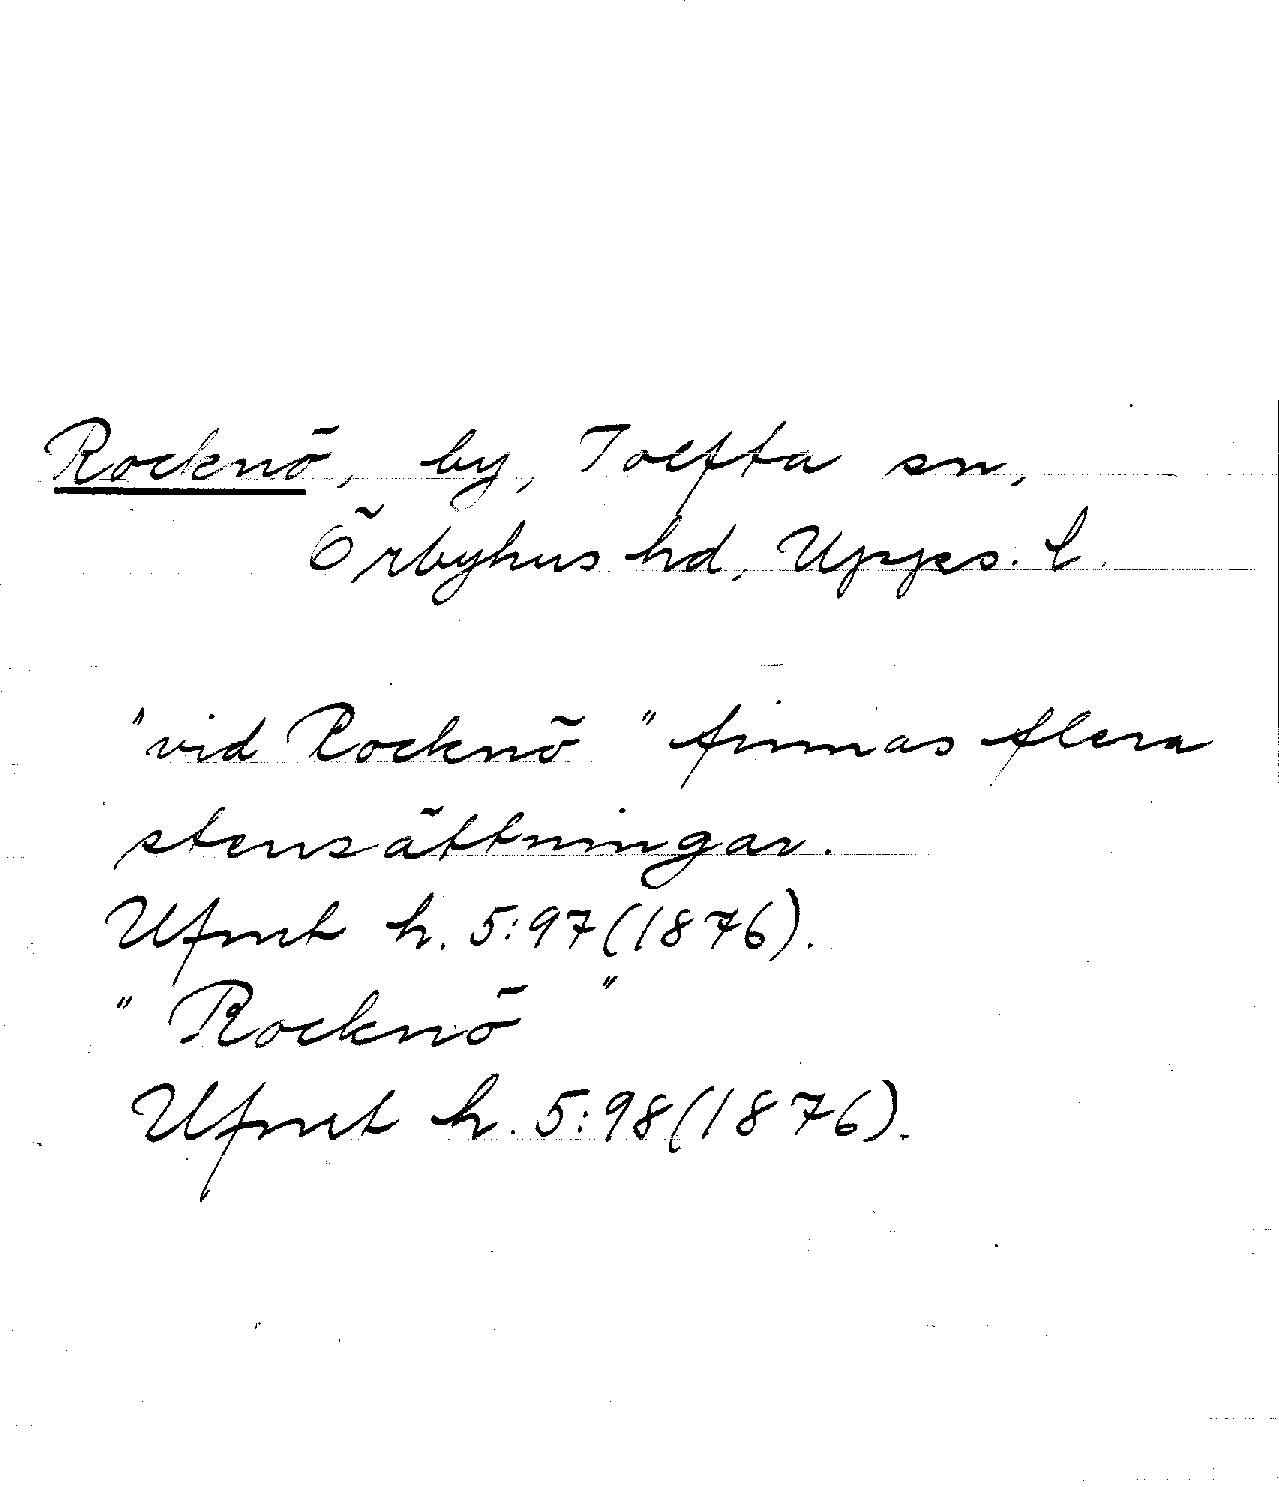 Rocknö, by, Tolfta sn,
Örbyhus hd, Upps. l.
"vid Rocknö" finnas flera
stensättningar.
Ufmt h. 5:97(1876).
"Rocknö"
Ufmt h. 5:98(1876).